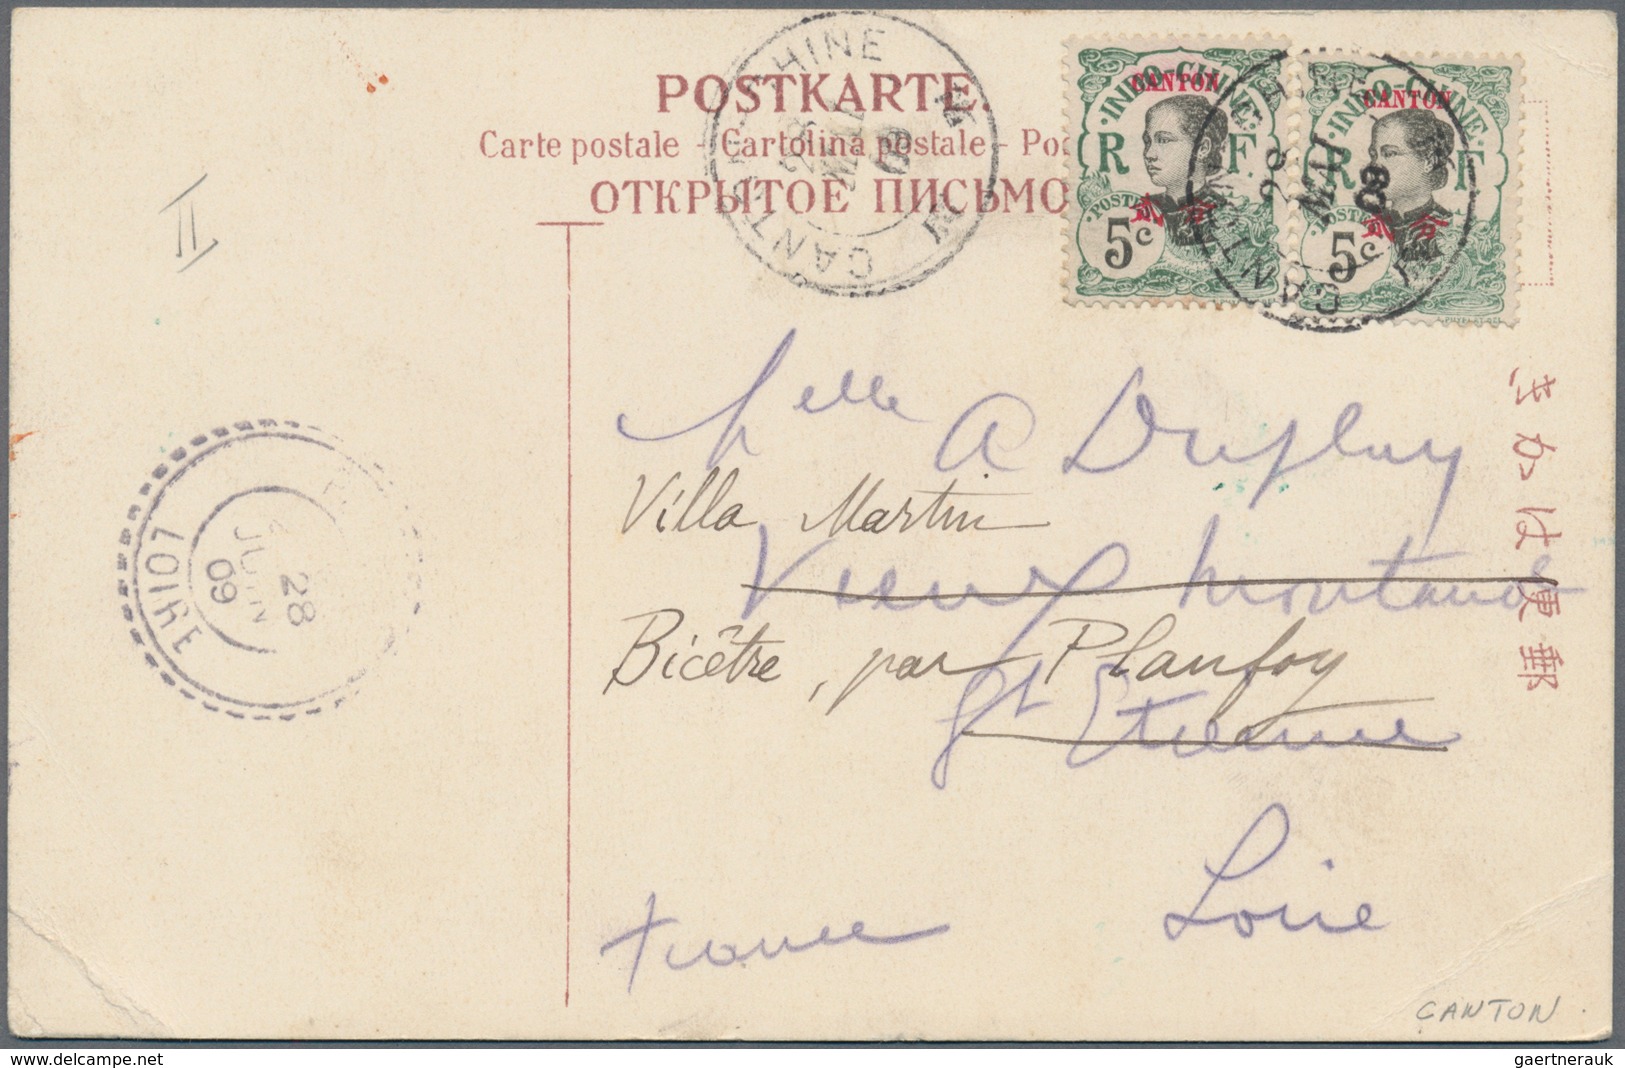 POSTKARTE.
Carte postale - Cartolina postale - Po
ОТКРЫТОЕ ПИСЬМО
CANTON - CHINE
28
MAI
09
INDO-CHINE
CANTON
R F.
POSTES
5c
INDO-CHINE
CANTON
R F
5c
CANTON
28
MAI
09
II
LOIRE
28
JUIN
09
きかは便郵
Melle A Dupluy
Villa Martin
Vieux Montaud
Bicêtre, par Planfoy
St Etienne
Loire
France
CANTON
gaertnerauk